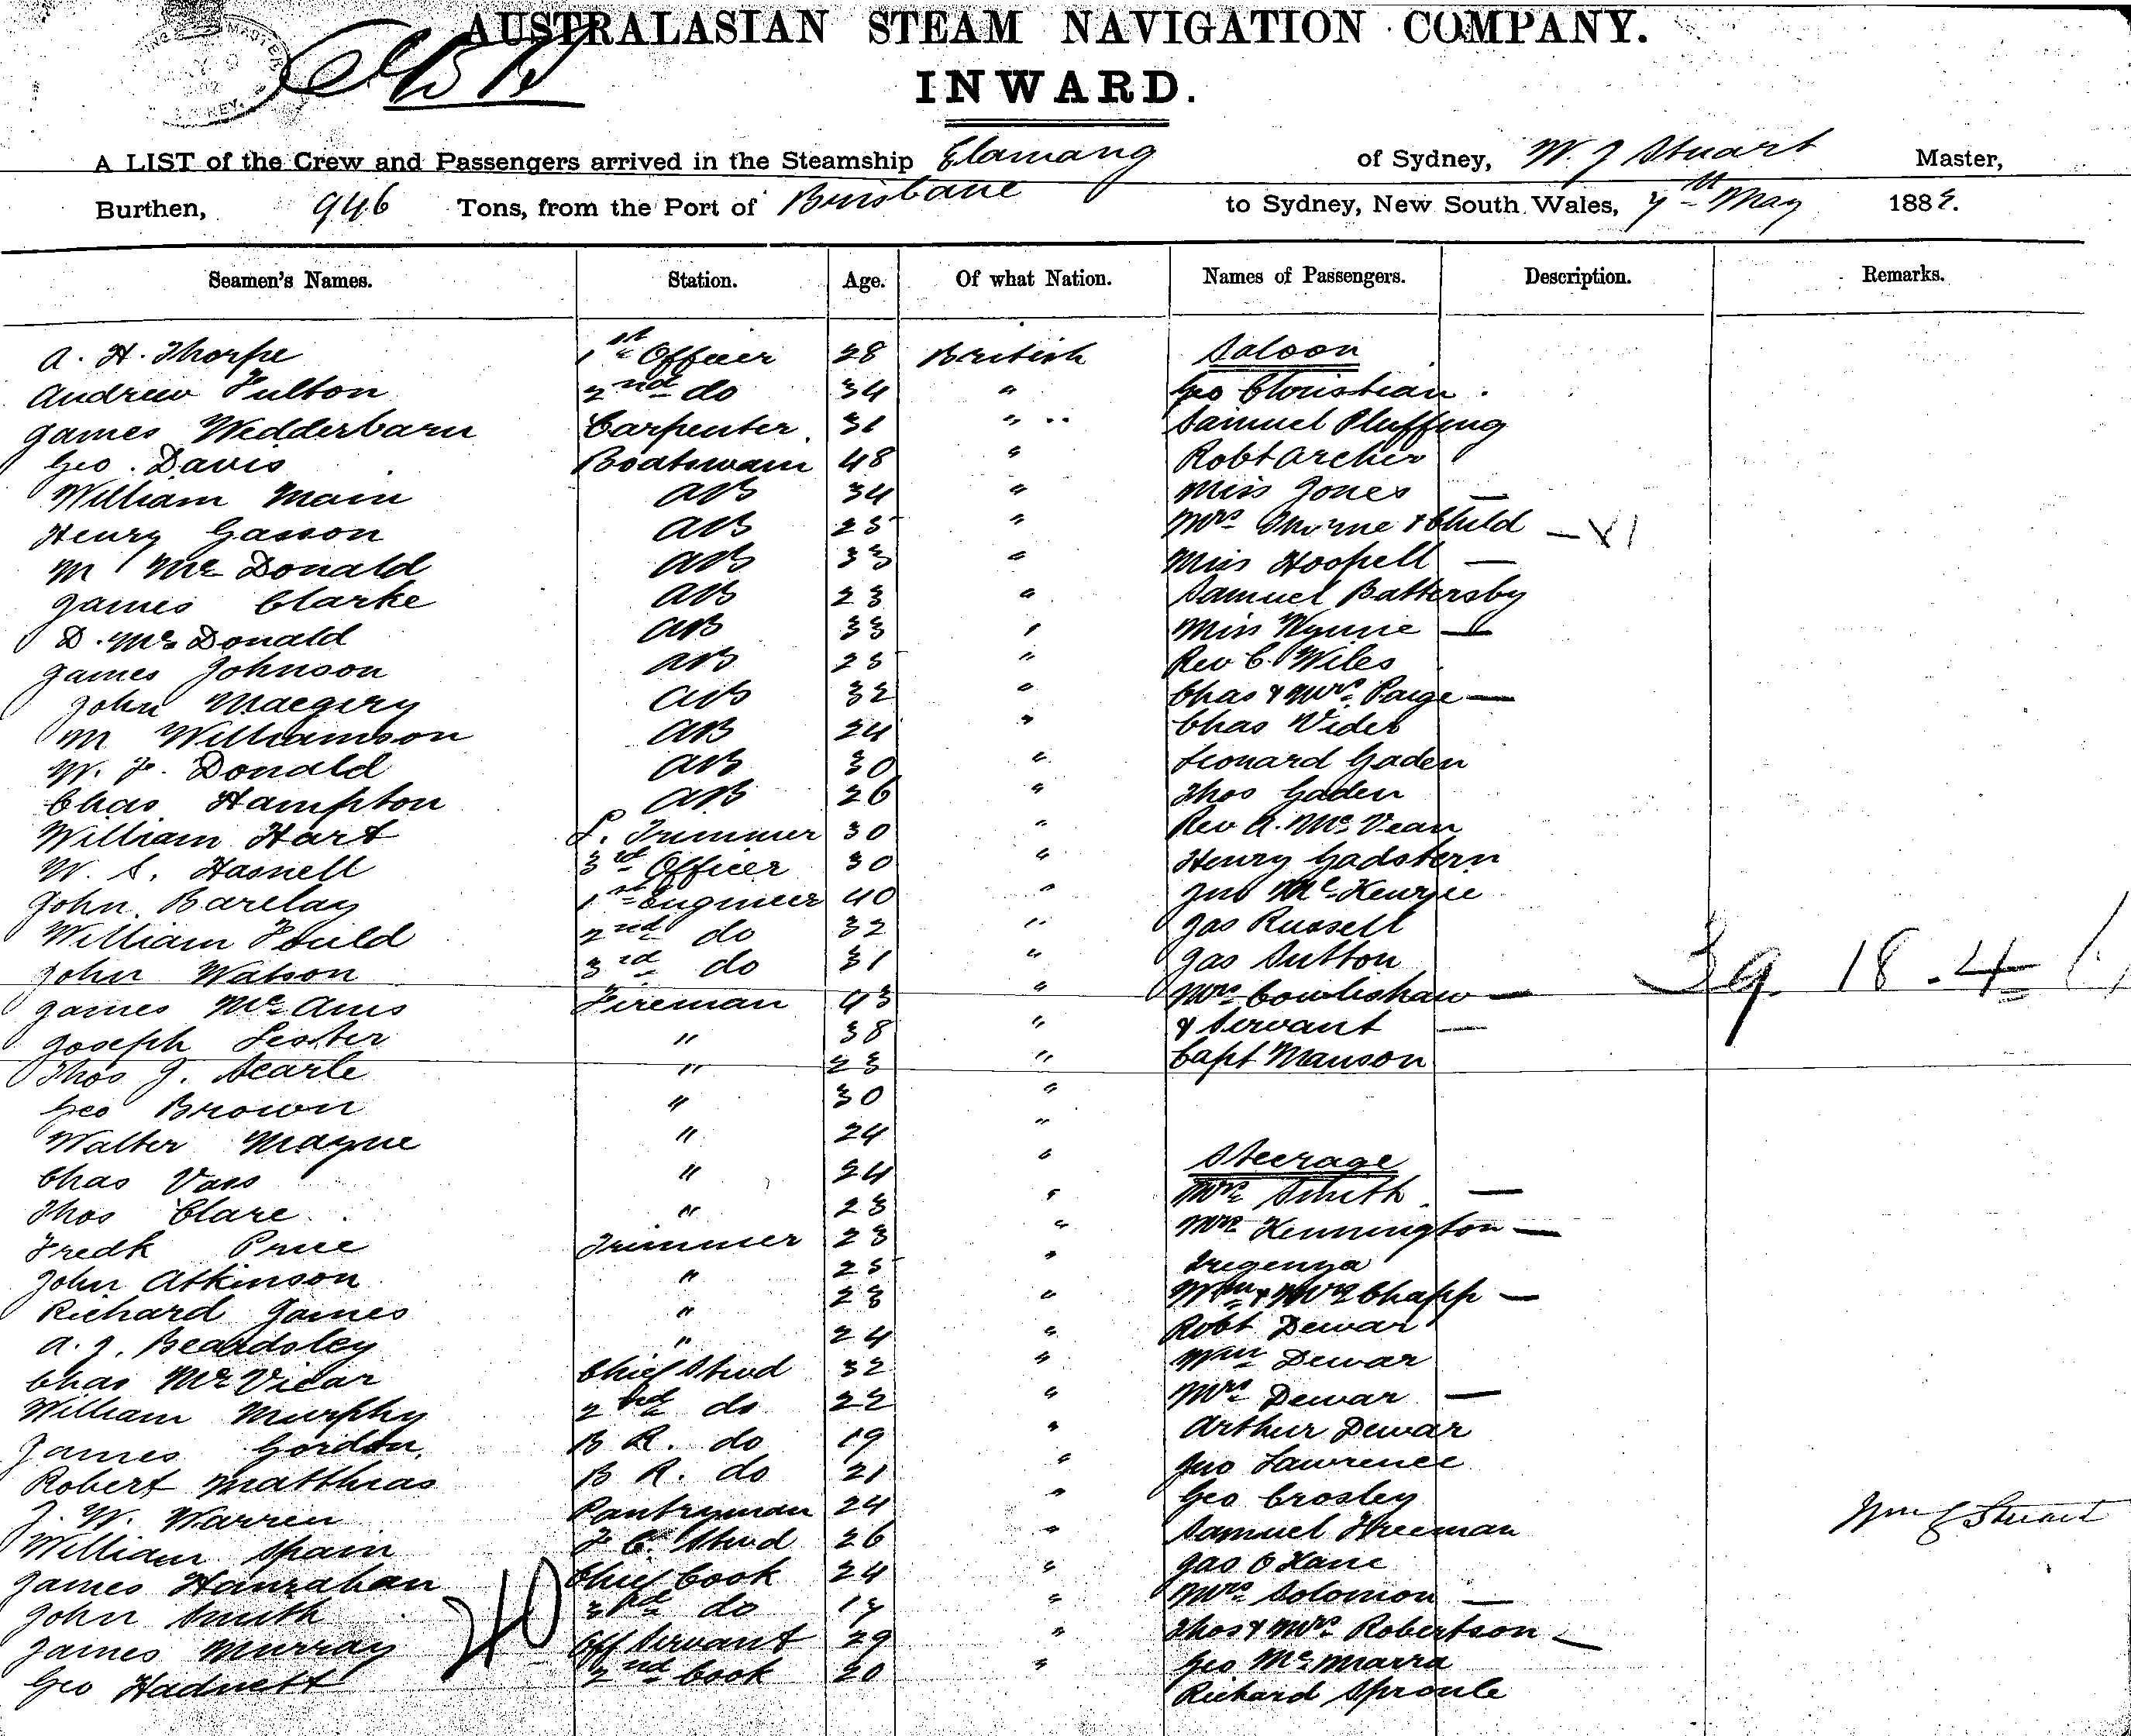 AUSTRALASIAN STEAM NAVIGATION COMPANY.
INWARD.
A LIST of the Crew and Passengers arrived in the Steamship Elamang of Sydney, W. J Stuart Master,
Burthen, 946 Tons, from the Port of Brisbane to Sydney, New South Wales, 7th May 188
Seamen's Names. Station. Age. Of what Nation. Names of Passengers. Description. Remarks.
A. H. Thorpe 1st Officer 28 British Saloon
Andrew Fulton 2nd do 34 " Geo Christian
James Wedderbarn Carpenter 31 " Samuel Pluffing
Geo. Davis Boatswain 48 " Robt Archer
William Main AB 34 " Miss Jones —
Henry Gasson AB 25 " Mrs & Child —
M McDonald AB 33 " Miss Hoopell —
James Clarke AB 23 " Samuel Battersby
D. McDonald AB 33 " Miss Wynne —
James Johnson AB 25 " Rev C. Wiles
John Maegery AB 32 " Chas & Mrs Paige —
M Williamson AB 24 " Chas Wider
W. F. Donald AB 30 " Leonard Gaden
Chas. Hampton AB 26 " Thos Gaden
William Hart L. Trimmer 30 " Rev A. McVean
W. S. Hasnell 3rd Officer 30 " Henry Gadstern
John Barclay 1st Engineer 40 " Jno McKenzie
William Fould 2nd do 32 " Jas Russell
John Watson 3rd do 31 " Jas Sutton 39 18.4
James McAnis Fireman 43 " Mrs Cowlishaw —
Joseph Lester " 38 " & Servant —
Thos J. Searle " 23 " Capt Manson
Geo Brown " 30 "
Walter Mayne " 24 "
Chas Vass " 24 " Steerage
Thos Clare " 23 " Mrs Smith —
Fredk Price Trimmer 23 " Mrs Kennington —
John Atkinson " 25 " Tregenza
Richard James " 23 " Wm & Mrs Chapp —
A. J. Beardsley " 24 " Robt Dewar
Chas McVicar Chief Stwd 32 " Wm Dewar
William Murphy 2nd do 22 " Mrs Dewar —
James Gordon B R. do 19 " Arthur Dewar
Robert Matthias B R. do 21 " Jno Lawrence
J. W. Warren Pantryman 24 " Geo Crosley
William Spain F C. Stwd 26 " Samuel Freeman
James Hanrahan Chief Cook 24 " Jas O Kane
John Smith 3rd do 17 " Mrs Solomon —
James Murray Off Servant 29 " Thos & Mrs Robertson —
Geo Hadnett 2nd Cook 20 " Geo McMarra
Richard Sproule
40